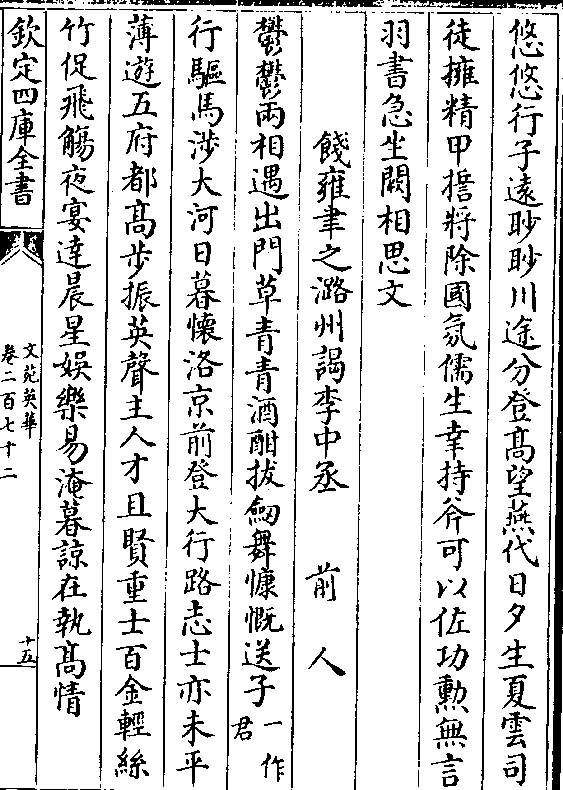 悠悠行子遠眇眇川途分登髙望燕代日夕生夏雲司
徒擁精甲誓將除國氛儒生幸持斧可以佐功勲無言
羽書急坐闕相思文
餞雍聿之潞州謁李中丞　前人
鬱鬱兩相遇出門草青青酒酣拔劒舞慷慨送子一作君
行驅馬涉大河日暮懷洛京前登大行路志士亦未平
薄遊五府都髙步振英聲主人才且賢重士百金輕絲
竹促飛觴夜宴達晨星娱樂易淹暮諒在執髙情
欽定四庫全書
文苑英華
卷二百七十二
十五